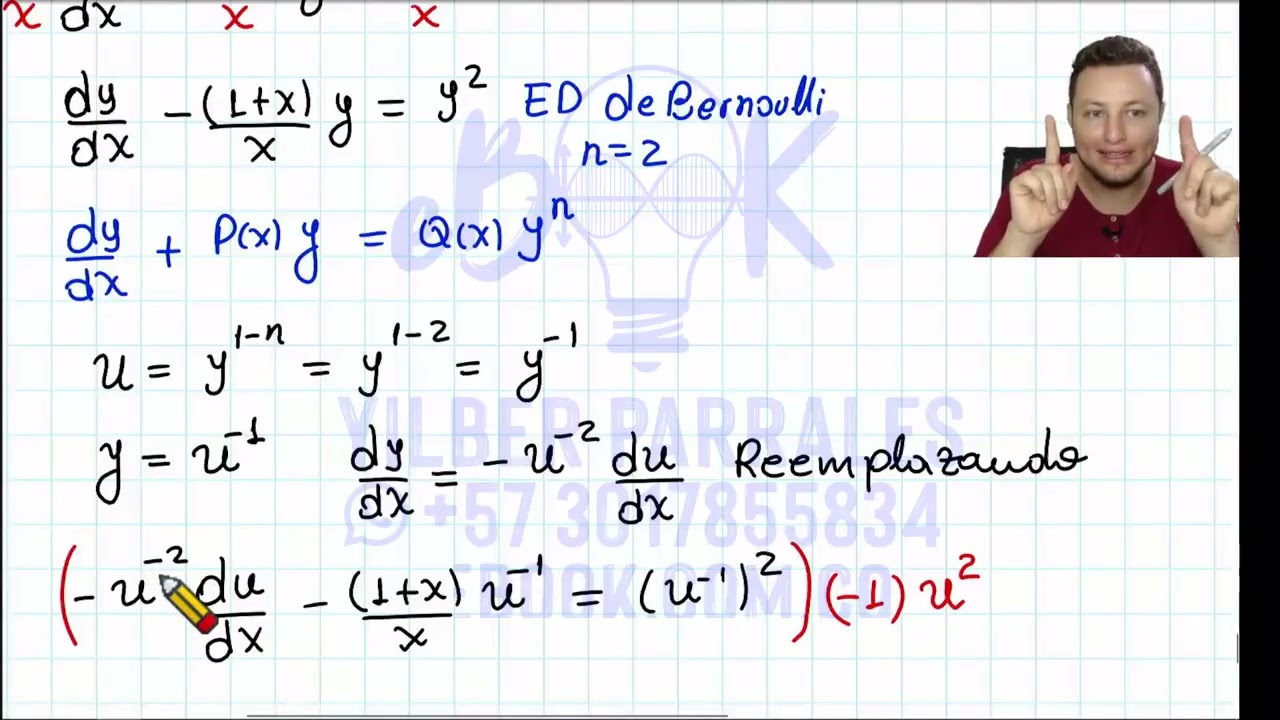 x dx x y x
dy/dx - (1+x)/x y = y² ED de Bernoulli
n=2
dy/dx + P(x) y = Q(x) yⁿ
u = y^(1-n) = y^(1-2) = y^(-1)
y = u^(-1) dy/dx = -u^(-2) du/dx Reemplazando
(-u^(-2) du/dx - (1+x)/x u^(-1) = (u^(-1))²) (-1) u²
eBOOK
YILBER PARRALES
+57 3017855834
EBOOK.COM.CO